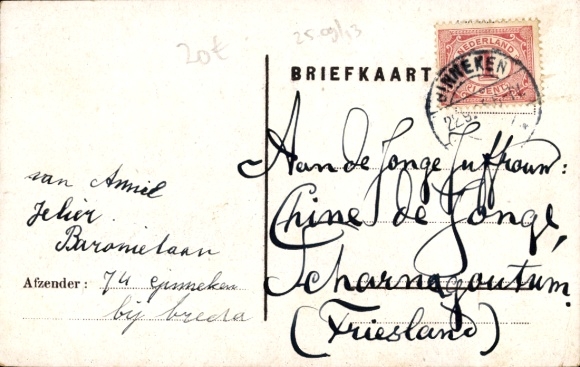 20€
25.09/13
BRIEFKAART
NEDERLAND
1
CENT
GINNEKEN
Aan de Jonge Juffrouw:
Chine de Jonge,
Scharnegoutum.
(Friesland)
van
Jelier.
Baronielaan
Afzender: 74 ginneken
bij breda